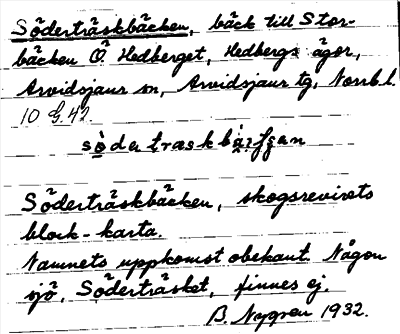 Söderträskbäcken, bäck till Stor-
bäcken Ö. Hedberget, Hedbergs ägor,
Arvidsjaur sn, Arvidsjaur tg, Norrb. l.
10 G. 42.
södətraskbäffən
Söderträskbäcken, skogsrevirets
block-karta.
Namnets uppkomst obekant. Någon
sjö, Söderträsket, finnes ej.
B. Nygren 1932.